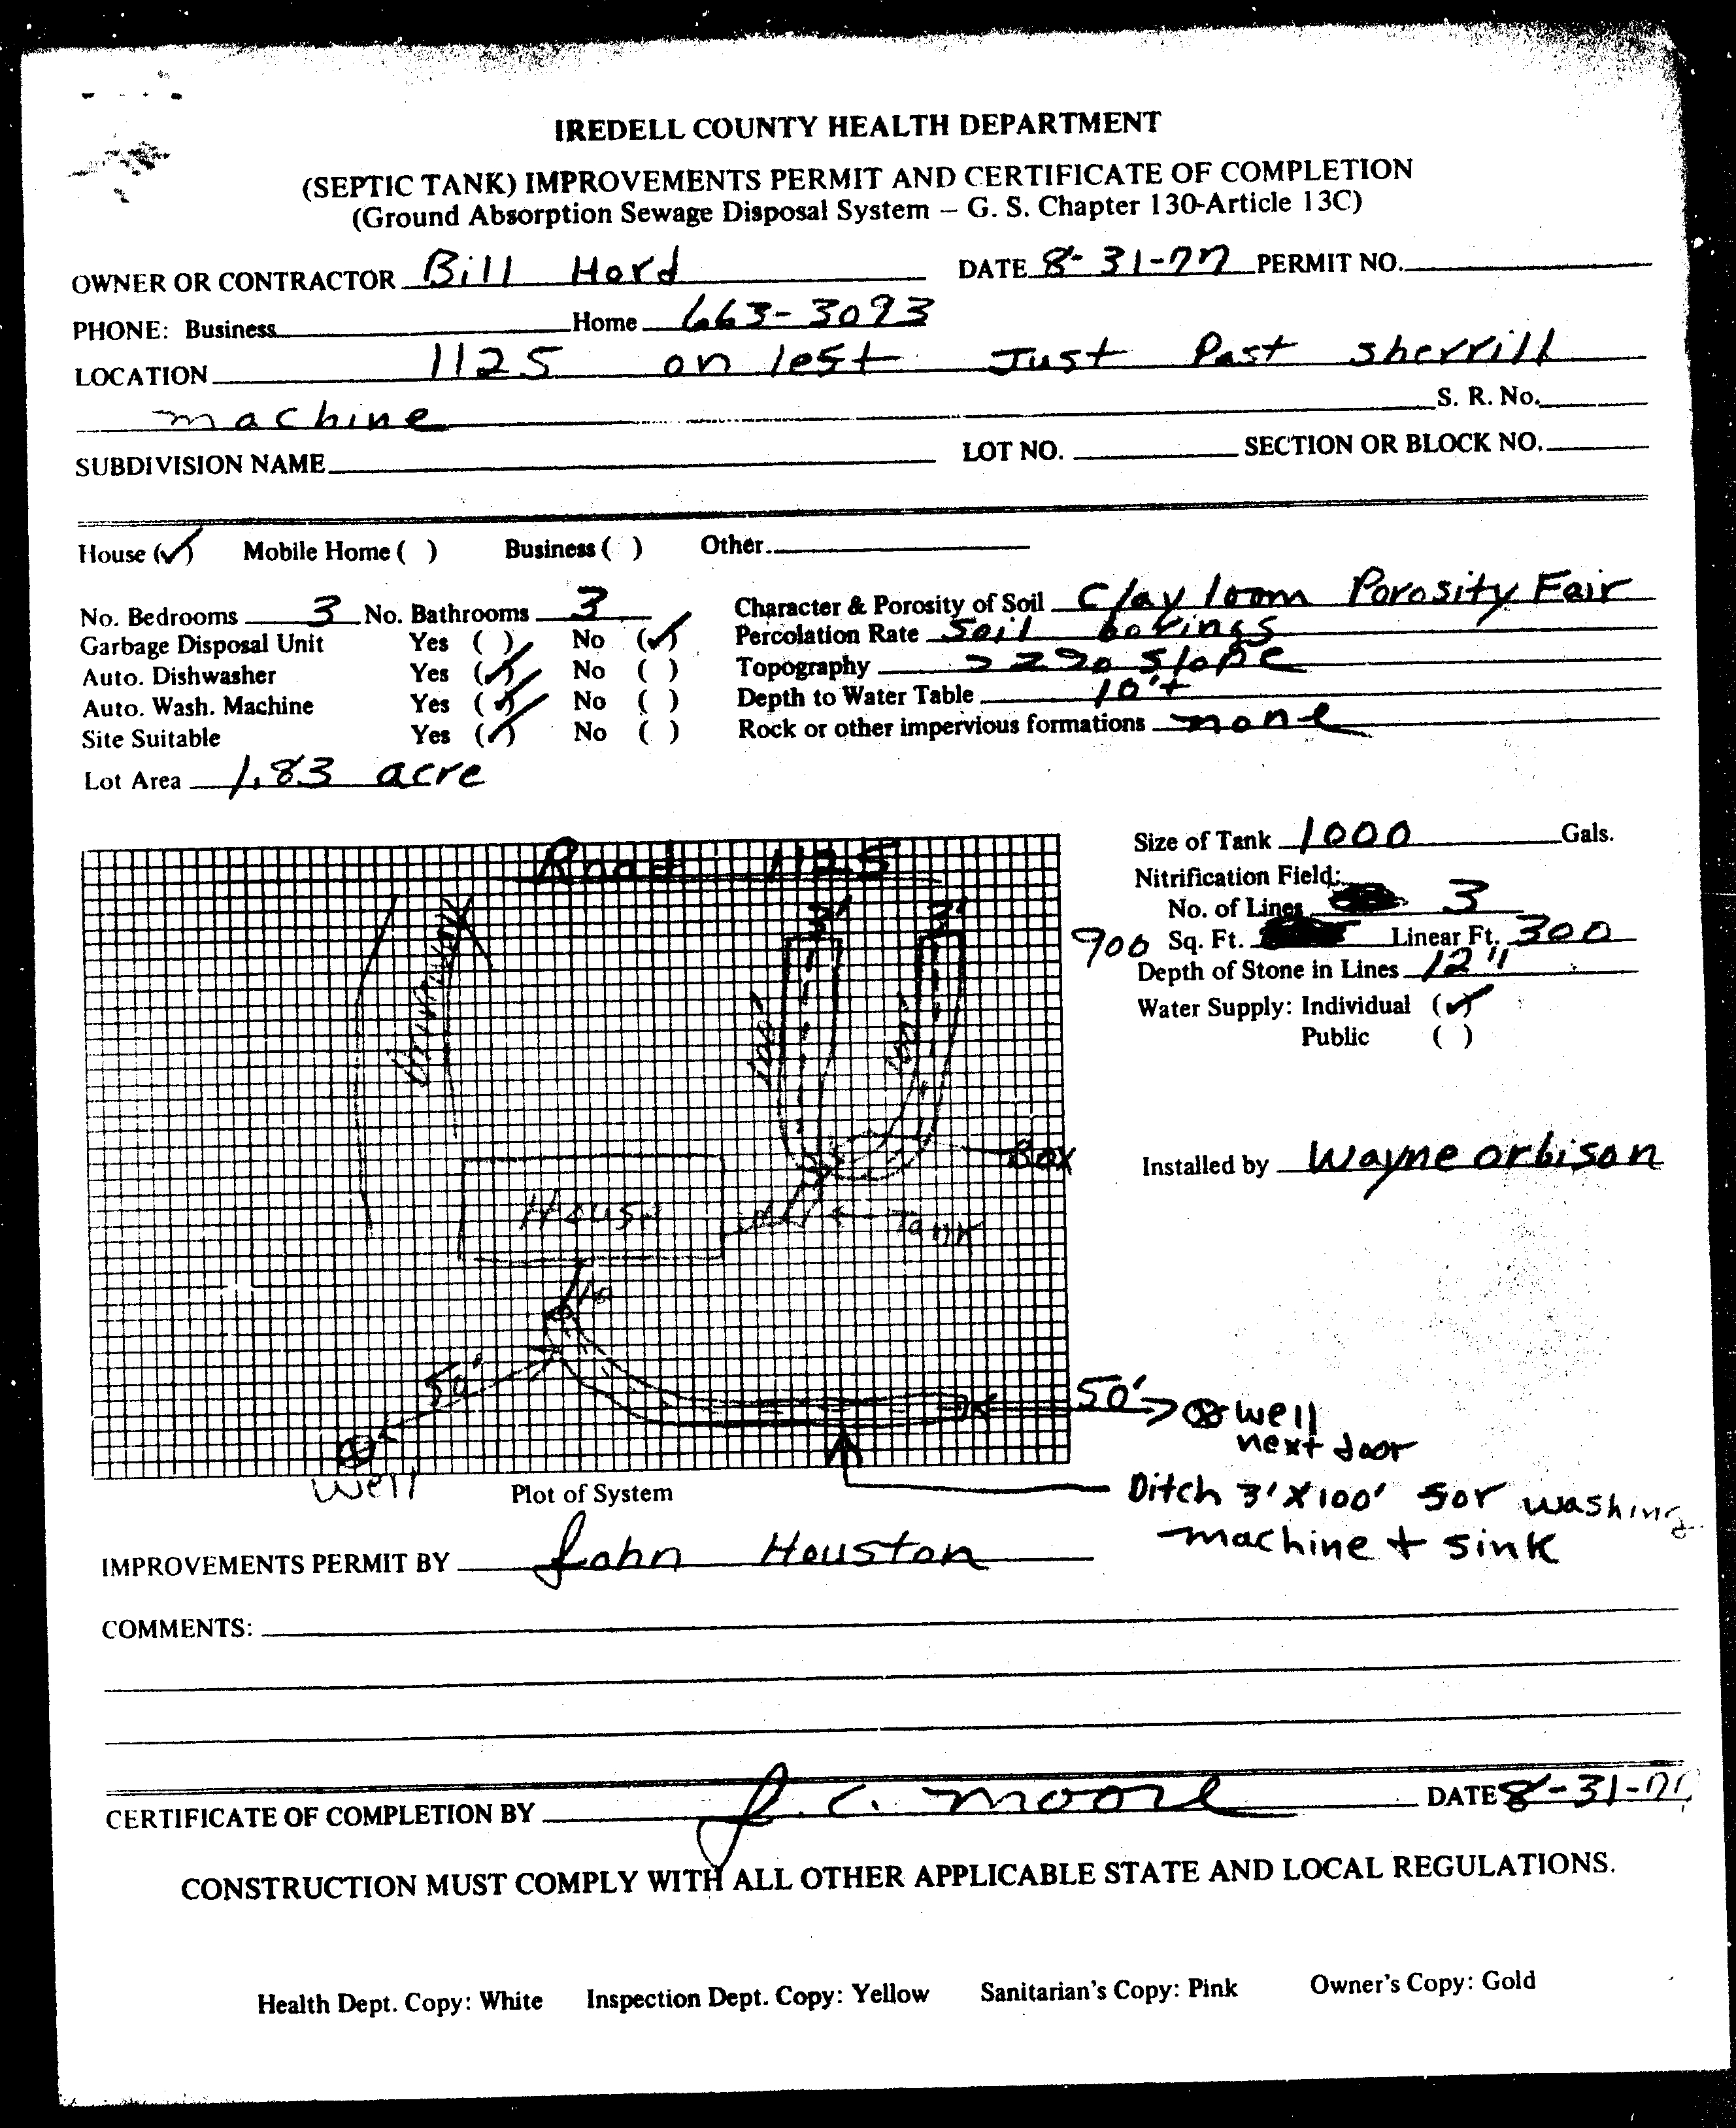 IREDELL COUNTY HEALTH DEPARTMENT
(SEPTIC TANK) IMPROVEMENTS PERMIT AND CERTIFICATE OF COMPLETION
(Ground Absorption Sewage Disposal System – G. S. Chapter 130-Article 13C)
OWNER OR CONTRACTOR Bill Hord DATE 8-31-77 PERMIT NO.
PHONE: Business Home 663-3093
LOCATION 1125 on left Just Past sherrill
machine S. R. No.
SUBDIVISION NAME LOT NO. SECTION OR BLOCK NO.
House (✓) Mobile Home ( ) Business ( ) Other
No. Bedrooms 3 No. Bathrooms 3 Character & Porosity of Soil Clay loam Porosity Fair
Garbage Disposal Unit Yes ( ) No (✓) Percolation Rate Soil borings
Auto. Dishwasher Yes (✓) No ( ) Topography > 2% slope
Auto. Wash. Machine Yes (✓) No ( ) Depth to Water Table 10'+
Site Suitable Yes (✓) No ( ) Rock or other impervious formations none
Lot Area 1.83 acre
Road 1125
Size of Tank 1000 Gals.
Nitrification Field:
No. of Lines 3
900 Sq. Ft. Linear Ft. 300
Depth of Stone in Lines 12"
Water Supply: Individual (✓)
Public ( )
3' 3'
Driveway
100' 100'
Box
Installed by Wayne orbison
House
Tank
50'
50' well
next door
well
Plot of System
Ditch 3' X 100' for washing
machine + sink
IMPROVEMENTS PERMIT BY John Houston
COMMENTS:
CERTIFICATE OF COMPLETION BY J. C. Moore DATE 8-31-77
CONSTRUCTION MUST COMPLY WITH ALL OTHER APPLICABLE STATE AND LOCAL REGULATIONS.
Health Dept. Copy: White Inspection Dept. Copy: Yellow Sanitarian's Copy: Pink Owner's Copy: Gold